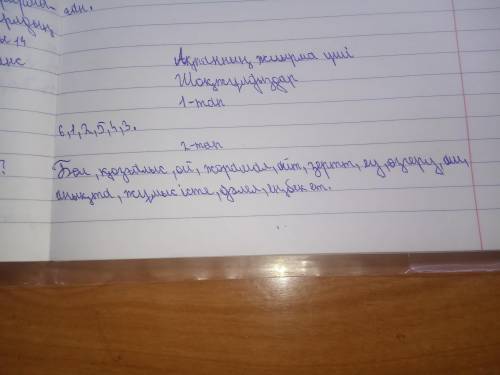 Ақпанның жиырма үші
Шоқжұлдыздар
1-тап
6,1,2,5,4,3.
2-тап
? Бөл, қозғалыс, ой, жорамал, айт, зертт, еу, өзгеру,
анықта, жұмыс істе, дәлел, еңбек ет.